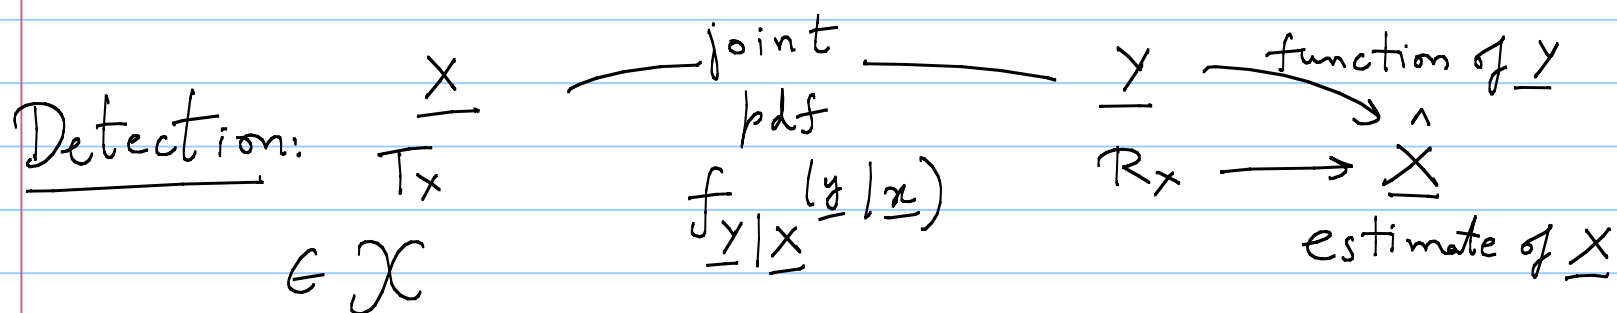 joint
Detection: X pdf Y function of Y
Tx f_{Y|X}(y|x) Rx → X̂
∈ 𝒳 estimate of X